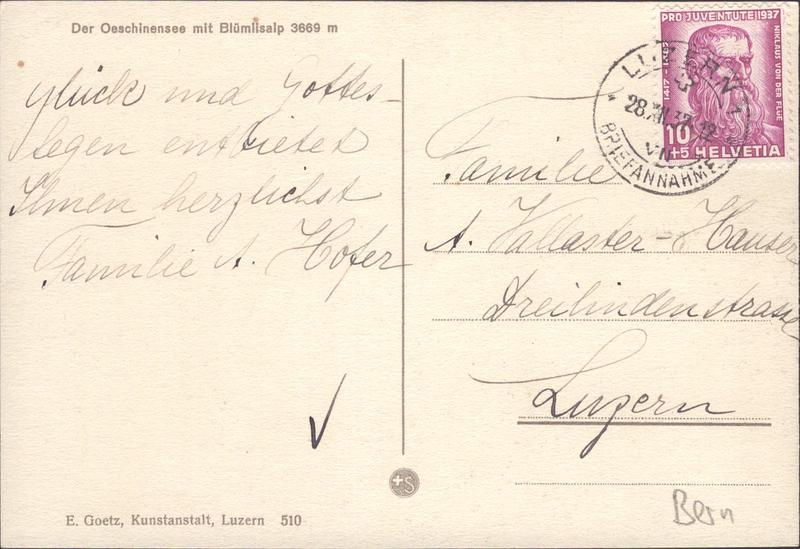 Der Oeschinensee mit Blümlisalp 3669 m
Glück und Gottes-
segen entbietet
Ihnen herzlichst
Familie A. Hofer
E. Goetz, Kunstanstalt, Luzern 510
+S
PRO JUVENTUTE 1937
NIKLAUS VON DER FLÜE
1417-1487
10
+5 HELVETIA
LUZERN 1
28.XII.37
BRIEFANNAHME
Familie
A. Vallaster-Hauser
Dreilindenstrasse
Luzern
Bern